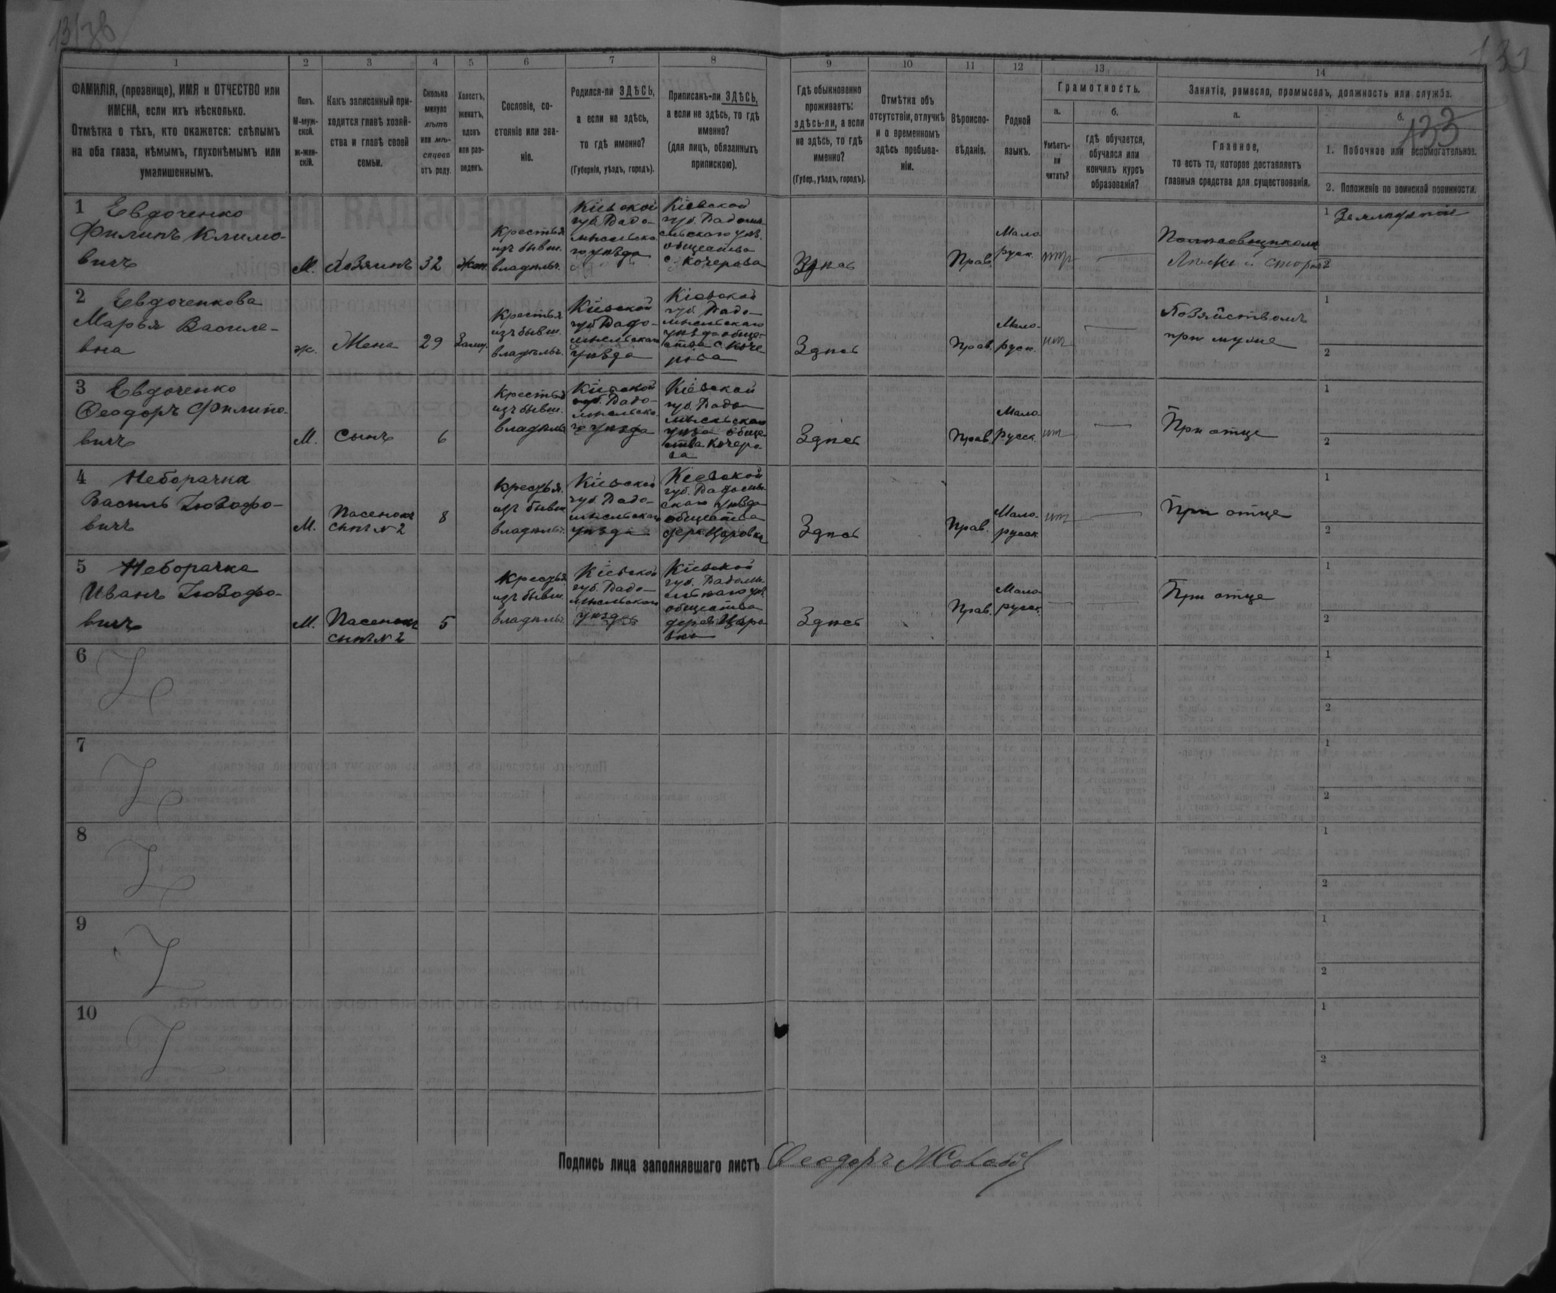 133
1
2
3
4
5
6
7
8
9
10
11
12
13
14
ФАМИЛІЯ, (прозвище), ИМЯ и ОТЧЕСТВО или
ИМЕНА, если ихъ нѣсколько.
Отмѣтка о тѣхъ, кто окажется: слѣпымъ
на оба глаза, нѣмымъ, глухонѣмымъ или
умалишеннымъ.
Полъ.
М-муж-
ской.
ж-жен-
скій.
Какъ записанный при-
ходится главѣ хозяй-
ства и главѣ своей
семьи.
Сколько
минуло
лѣтъ
или мѣ-
сяцевъ
отъ роду.
Холостъ,
женатъ,
вдовъ
или раз-
веденъ.
Сословіе, со-
стояніе или зва-
ніе.
Родился-ли ЗДѢСЬ,
а если не здѣсь,
то гдѣ именно?
(Губернія, уѣздъ, городъ).
Приписанъ-ли ЗДѢСЬ,
а если не здѣсь, то гдѣ
именно?
(для лицъ, обязанныхъ
припискою).
Гдѣ обыкновенно
проживаетъ:
здѣсь-ли, а если
не здѣсь, то гдѣ
именно?
(Губер., уѣздъ, городъ).
Отмѣтка объ
отсутствіи, отлучкѣ
и о временномъ
здѣсь пребыва-
ніи.
Вѣроиспо-
вѣданіе.
Родной
языкъ.
Грамотность.
а.
Умѣетъ-
ли
читать?
б.
гдѣ обучается,
обучался или
кончилъ курсъ
образованія?
Занятіе, ремесло, промыселъ, должность или служба.
а.
Главное,
то есть то, которое доставляетъ
главныя средства для существованія.
б.
133
1. Побочное или вспомогательное.
2. Положеніе по воинской повинности.
1 Евдоченко
Филипъ Климо-
вичъ
М.
Хозяинъ
32
Жен.
Крестья.
изъ бывш.
владѣльч.
Кіевской
губ. Радо-
мысльска-
го уѣзда
Кіевской
губ. Радомы-
сльскаго уѣз.
общества
с. Кочерова
Здѣсь
Прав.
Мало
русск.
нѣтъ
1 Земледѣліе
2
2 Евдоченкова
Марья Василе-
вна
ж.
Жена
29
Замуж.
Крестья.
изъ бывш.
владѣльч.
Кіевской
губ. Радо-
мысльскаго
уѣзда
Кіевской
губ. Радо-
мысльскаго
уѣзда обще-
ства с. Коче
рова
Здѣсь
Прав.
Мало-
русск.
нѣтъ
Хозяйствомъ
при мужѣ
1
2
3 Евдоченко
Ѳеодоръ Филипо-
вичъ
М.
Сынъ
6
Крестья.
изъ бывш.
владѣльч.
Кіевской
губ. Радо-
мысльска-
го уѣзда
Кіевской
губ. Радо
мысльскаго
уѣзда обще
ства Кочеро
ва
Здѣсь
Прав.
Мало-
русск.
нѣтъ
При отце
1
2
4 Неборачка
Василь
вичъ
М.
Пасенокъ
сынъ №2
8
Крестья.
изъ бывш.
владѣльч.
Кіевской
губ. Радо-
мысльскаго
уѣзда
Кіевской
губ. Радомысль
скаго уѣзда
общества
Здѣсь
Прав.
Мало-
русск.
нѣтъ
При отце
1
2
5 Неборачка
Иванъ
вичъ
М.
Пасенокъ
сынъ №2
5
Крестья.
изъ бывш.
владѣльч.
Кіевской
губ. Радо-
мысльскаго
уѣзда
Кіевской
губ. Радомы-
общества
Здѣсь
Прав.
Мало-
русск.
При отце
1
2
6
1
2
7
1
2
8
1
2
9
1
2
10
1
2
Подпись лица заполнявшаго листъ Ѳеодоръ